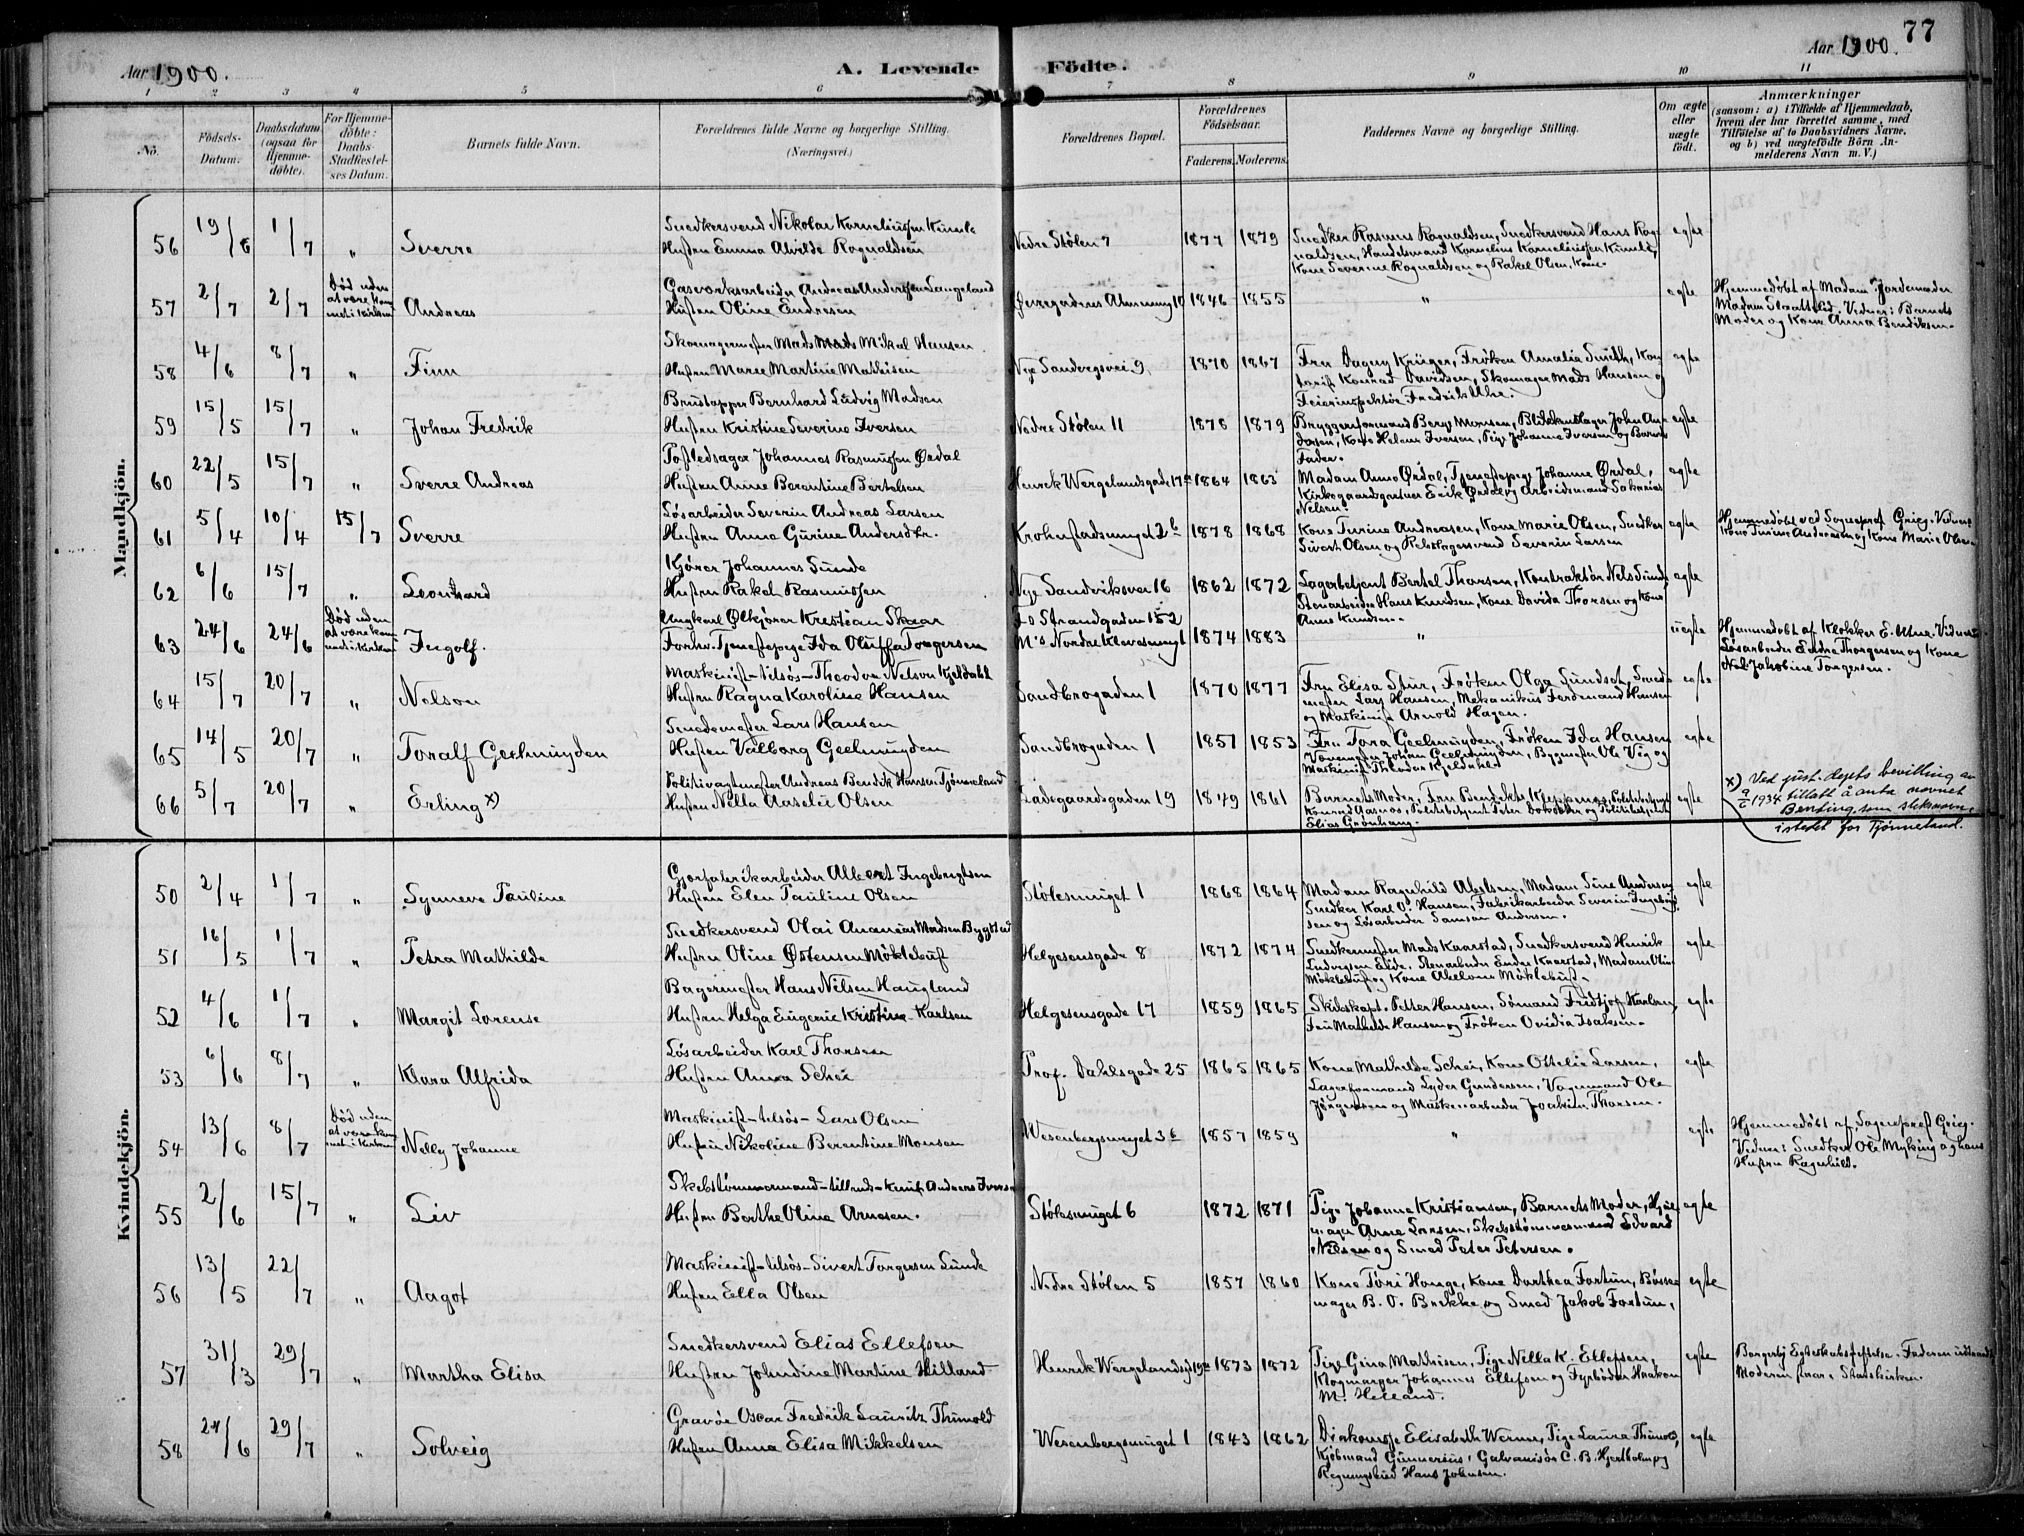 77
Aar 1900.
A. Levende Födte.
Aar 1900.
1 2 3 4 5 6 7 8 9 10 11
No.
Födsels-Datum.
Daabsdatum (ogsaa for Hjemme-döbte).
For Hjemme-döbte: Daabs-Stadfæstel-ses Datum.
Barnets fulde Navn.
Forældrenes fulde Navne og borgerlige Stilling.
(Næringsvei.)
Forældrenes Bopæl.
Forældrenes Födselsaar.
Faderens. Moderens.
Faddernes Navne og borgerlige Stilling.
Om ægte eller uægte födt.
Anmærkninger
(saasom: a) i Tilfælde af Hjemmedaab, hvem der har forrettet samme, med Tilföielse af to Daabsvidners Navne, og b) ved uægtefödte Börn An-melderens Navn m. V.)
Mandkjön.
56 19/6 1/7 " Sverre
Snedkersvend Nikolai Korneliussen Kumle
Hustru Emma Alvilde Rognaldsen
Nedre Stølen 7 1877 1879
Snedker Rasmus Rognaldsen, Snedkersvend Hans Rog-
naldsen, Handelsmand Kornelius Korneliussen Kumle,
Kone Severine Rognaldsen og Rakel Olsen, Kone.
egte
57 2/7 2/7 Død uden at være kom-met i Kirken Andreas
Gasverksarbeider Andreas Andersen Langeland
Hustru Oline Endresen
1846 1855 " egte
Hjemmedøbt af Madam Jordemoder
Vidner: Barnets
Moder og Kone Anna Bendiksen.
58 4/6 8/7 " Finn
Skomagermester Mads Mikal Hansen
Hustru Marie Martine Mathisen
Nye Sandvigsvei 9 1870 1867
Fru Dagny Krüger, Frøken Amalia Smith, Kon-
torist Konrad Davidsen, Skomager Mads Hansen og
Feierinspektør Fredrik
egte
59 15/5 15/7 " Johan Fredrik
Brustapper Bernhard Ludvig Madsen
Hustru Kristine Severine Iversen
Nedre Stølen 11 1878 1879
Bryggeriformand Berge Monsen, Blikkenslager John An-
dersen, Kone Helene Iversen, Pige Johanne Iversen og Barnets
Fader.
egte
60 22/5 15/7 " Sverre Andreas
Johannes Rasmussen Ørdal
Hustru Anne Berentine Bertelsen
Henrik Wergelandsgade 17a 1864 1863
Madam Anne Ørdal, Tjenestepige Johanne Ørdal,
Kirkegaardsgartner Erik Ørdal og Arbeidsmand Sakarias
Nelsen.
egte
61 5/4 10/4 15/7 Sverre
Løsarbeider Severin Andreas Larsen
Hustru Anne Gurine Andersdtr.
Krohnstadsmuget 2b 1878 1868
Kone Turine Andreasen, Kone Marie Olsen, Snedker
Sivert Olsen og Severin Larsen
egte
Hjemmedøbt ved Sognepræst Grieg. Vidner
Kone Turine Andreasen og Kone Marie Olsen
62 6/6 15/7 " Leonhard
Kjører Johannes Sunde
Hustru Rakel Rasmussen
Nye Sandviksvei 16 1862 1872
Lagerbetjent Bertel Thorsen, Kontraktør Nels Sunde
Stenarbeider Hans Knudsen, Kone Davida Thorsen og Kone
Anne Knudsen.
egte
63 24/6 24/6 Død uden at være kom-met i Kirken Ingolf.
Ungkarl Ølkjører Kristian Skaar
Forhv. Tjenestepige Ida Oluffa Torgersen
F's Strandgaden 152
M's Nordre Kleivesmuget 1874 1883 " uegte
Hjemmedøbt af Klokker E. Vidner:
Løsarbeider Endre Thorgersen og Kone
Jakobine Torgersen.
64 15/7 20/7 " Nelson
Maskinist - tilsøs - Theodor Nelson Kjeldahl
Hustru Ragna Karoline Hansen
Sandbrogaden 1 1870 1877
Fru Elisa Stur, Frøken Olga Sundsdt, Smede-
mester Lars Hansen, Mekanikus Ferdinand Hansen
og Maskinist Arnold Hagen.
egte
65 14/5 20/7 " Toralf Geelmuyden
Smedemester Lars Hansen
Hustru Valborg Geelmuyden
Sandbrogaden 1 1857 1853
Fru Tora Geelmuyden, Frøken Ida Hansen
Johan Geelmuyden, Bygmester Ole Vig og
Maskinist Theodor Kjeldahl.
egte
66 5/7 20/7 " Erling x)
Politivagtmester Andreas Bendik Hansen Tjønneland
Hustru Nella Aaselie Olsen
Ladegaardsgaden 19 1849 1861
Barnets Moder, Fru Benedikte
Konrad Rasmus, Politibetjent Peter og Politibetjent
Elias Grønhaug.
egte
x) Ved just.dep'ts bevilling av
9/6 1934 tillatt å anta navnet
Benting som slektsnavn
istedet for Tjønneland.
Kvindekjön.
50 2/4 1/7 " Synneve Pauline
Gjærfabrikarbeider Albert Ingebrigtsen
Hustru Elen Pauline Olsen
Stølesmuget 1 1868 1864
Madam Ragnhild Abelsen, Madam Sine Andersen
Snedker Karl O. Hansen, Fabrikarbeider Severin Ingebrigt-
sen og Løsarbeider Samson Andersen.
egte
51 16/5 1/7 " Petra Mathilde
Snedkersvend Olai Ananias Madsen Bygstad
Hustru Oline Østensen Møklebust
Helgesensgade 8 1872 1874
Snedkermester Mads Kaarstad, Snedkersvend Henrik
Ludvigsen Eide, Stenarbeider Endre Kaarstad, Madam Oline
Møklebust og Kone Abelone Møklebust.
egte
52 4/6 1/7 " Margit Lorense
Bagermester Hans Nilsen Haugland
Hustru Helga Eugenie Kristine Karlsen
Helgesensgade 17 1859 1865
Skibskapt. Petter Hansen, Sømand Fridtjof Karlsen,
Fru Mathilde Hansen og Frøken Ovidia Isaksen.
egte
53 6/6 8/7 " Klara Alfrida
Løsarbeider Karl Thorsen
Hustru Anna Schei
Prof. Dahlsgade 25 1865 1865
Kone Mathilde Schei, Kone Ottelie Larsen,
Lagerformand Lyder Gundersen, Vognmand Ole
Jørgensen og Murerarbeider Joakim Thorsen.
egte
54 13/6 8/7 Død uden at være kom-met i Kirken Nelly Johanne
Maskinist - tilsøs - Lars Olsen
Hustru Nikoline Berentine Monsen
Wesenbergsmuget 3b 1857 1859 " egte
Hjemmedøbt af Sognepræst Grieg.
Vidner: Snedker Ole Myking og hans
Hustru Ragnhild.
55 2/6 15/7 " Liv
Skibstømmermand - tillands - Knut Andreas Iversen
Hustru Berthe Olina Arnesen.
Stølesmuget 6 1872 1871
Pige Johanne Kristiansen, Barnets Moder,
Arne Larsen, Skibstømmermand Edvard
Nilsen og Smed Peter Petersen.
egte
56 13/5 22/7 " Aagot
Maskinist - tilsøs - Sivert Torgersen Lunde
Hustru Ella Olsen
Nedre Stølen 5 1857 1860
Kone Tøri Hauge, Kone Dorthea Fortun, Bøsse-
mager B. O. Brekke og Smed Jakob Fortun.
egte
57 31/3 29/7 " Martha Elisa
Snedkersvend Elias Ellefsen
Hustru Johndine Martine Hilland
Henrik Wergelandsgd 19a 1873 1872
Pige Gina Mathisen, Pige Nella K. Ellefsen,
Johannes Ellefsen og Fyrbøder Haakon
M. Helland.
egte
Borgerlig Egteskabsstiftelse. Faderen udtraadt
Moderen staar i Statskirken.
58 24/6 29/7 " Solveig
Gravør Oscar Fredrik Lauritz Thimold
Hustru Anna Elisa Mikkelsen
Wesenbergsmuget 1 1843 1862
Diakonisse Elisabeth Werner, Pige Laura Thimold,
Kjøbmand Gunnerius, Galvanisør C. B. Hjertholm og
Hans Johnsen.
egte